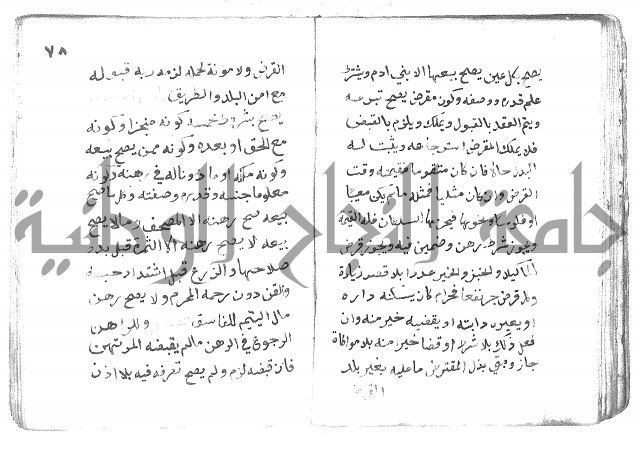 يصح بكل عين يصح بيعها الا بني ادم ويشترط
علم قدره ووصفه وكون مقرض يصح تبرعه
ويتم العقد بالقبول ويملك ويلزم بالقبض
فلا يملك المقرض استرجاعه ويثبت له
البدل حالا فان كان متقوما فقيمته وقت
القرض وان كان مثليا فمثله مالم يكن معيبا
او فلوسا ونحوها فيحرمها السلطان فله القيمة
ويجوز شرط رهن وضمين فيه ويجوز قرض
الماء كيلا والخبز والخمير عددا بلا قصد زيادة
وكل قرض جر نفعا فحرام كان يسكنه داره
او يعيره دابته او يقضيه خير منه وان
فعل ذلك بلا شرط او قضا خير منه بلا مواطاة
جاز ومتى بذل المقترض ما عليه بغير بلد
القرض
٧٨
القرض ولا مونة لحمله لزم ربه قبوله
مع امن البلد والطريق
يصح بشروط خمسة كونه منجزا وكونه
مع الحق او بعده وكونه ممن يصح بيعه
وكونه ملكه او ماذونا له في رهنه وكونه
معلوما جنسه وقدره وصفته وكل ما صح
بيعه صح رهنه الا المصحف ومالا يصح
بيعه لا يصح رهنه الا الثمرة قبل بدو
صلاحها والزرع قبل اشتداد حبه
والقن دون رحمه المحرم ولا يصح رهن
مال اليتيم للفاسق وللراهن
الرجوع في الرهن مالم يقبضه المرتهن
فان قبضه لزم ولم يصح تصرفه فيه بلا اذن
جامعة النجاح الوطنية